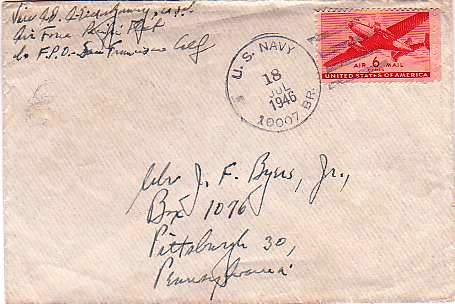 Air Force Pacific Fleet
c/o F.P.O. San Francisco Calif
U. S. NAVY
18
JUL
1946
10007 BR.
6
CENTS
AIR MAIL
UNITED STATES OF AMERICA
Mr J. F. Byers, Jr.,
Box 1076
Pittsburgh 30,
Pennsylvania.